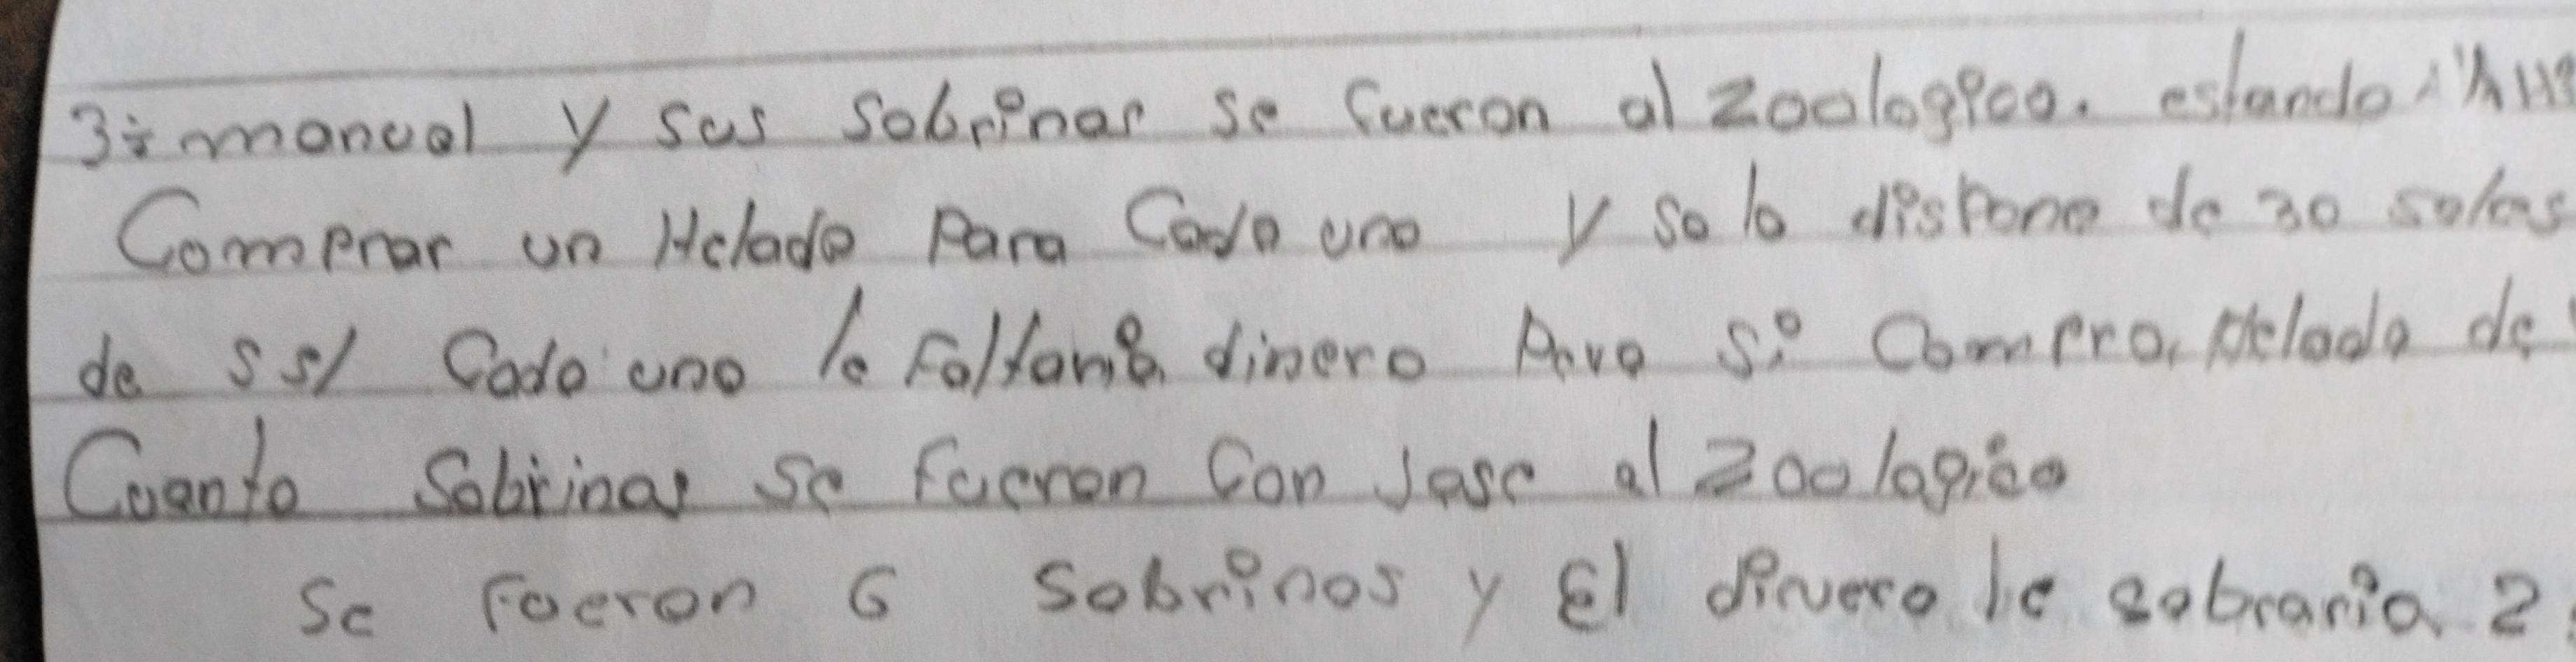 3: manuel y sus sobrinas se fueron al zoologico. estando
Comprar un Helado Para Cada uno y solo dispone de 30 soles
de 5 s/ Cada uno le Faltaria dinero Pero si Compra, Helado de
Cuanto Sobrinas se fueron Con Jose al zoologico
Se Fueron 6 Sobrinos y El dinero le sobraria 2